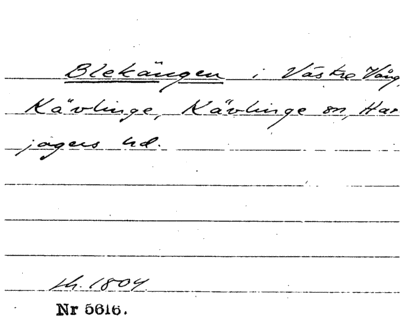 Blekängen i Västre Vång,
Kävlinge, Kävlinge sn, Har
jagers hd.
sk. 1804
Nr 5616.